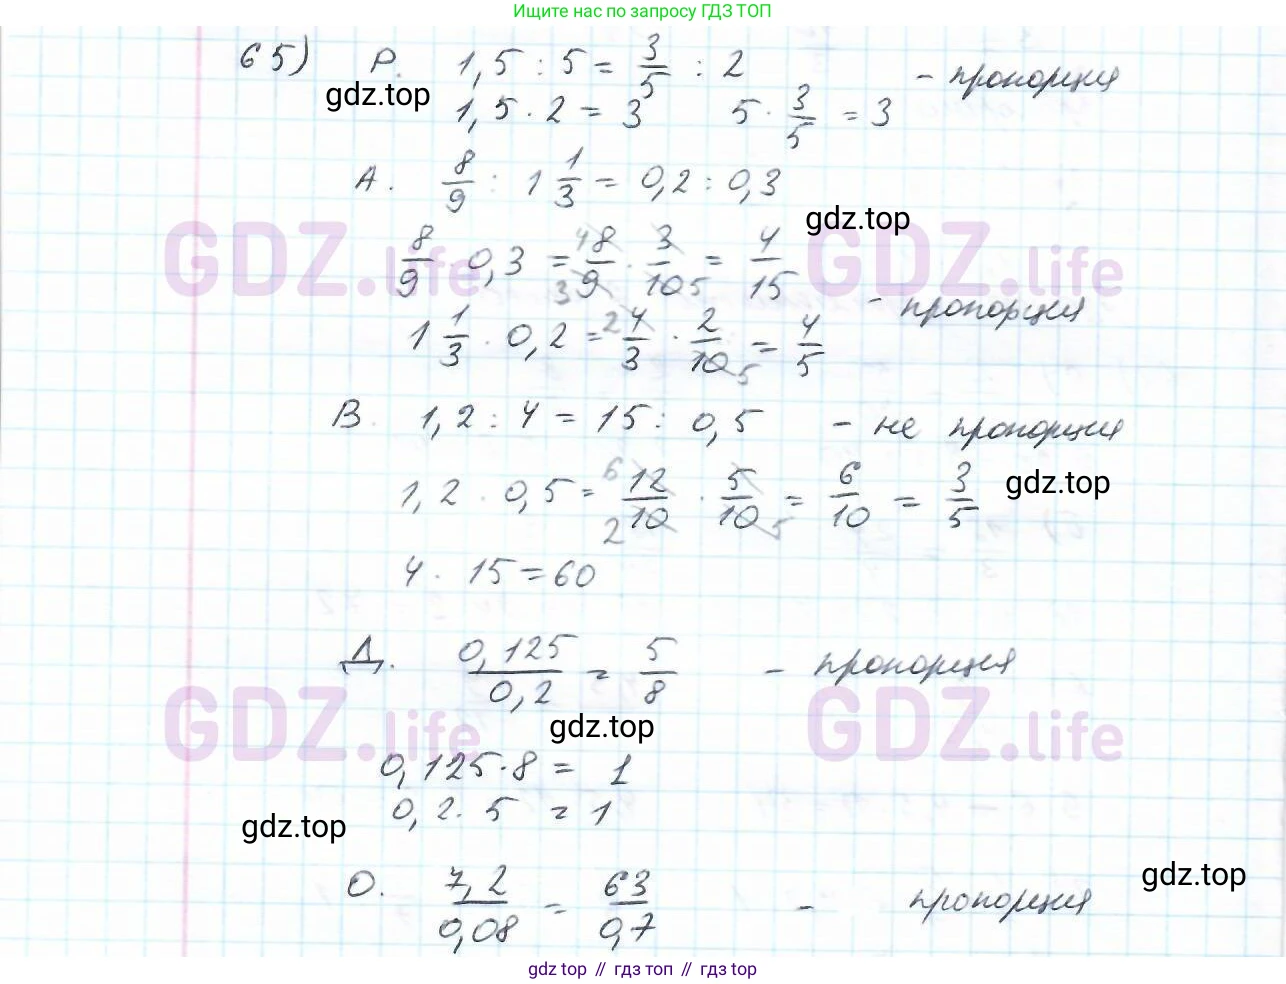 Ищите нас по запросу ГДЗ ТОП
65) Р. 1,5 : 5 = 3/5 : 2 - пропорция
gdz.top
1,5 · 2 = 3 5 · 3/5 = 3
А. 8/9 : 1 1/3 = 0,2 : 0,3
gdz.top
GDZ.life GDZ.life
8/9 · 0,3 = 8/9 · 3/10 = 4/15
4 3 5
- пропорция
1 1/3 · 0,2 = 4/3 · 2/10 = 4/5
2 5
В. 1,2 : 4 = 15 : 0,5 - не пропорция
gdz.top
1,2 · 0,5 = 12/10 · 5/10 = 6/10 = 3/5
6 2 5
4 · 15 = 60
Д. 0,125/0,2 = 5/8 - пропорция
GDZ.life GDZ.life
gdz.top
0,125 · 8 = 1
0,2 · 5 = 1
gdz.top
О. 7,2/0,08 = 63/0,7 - пропорция
gdz.top
gdz top // гдз топ // гдз top